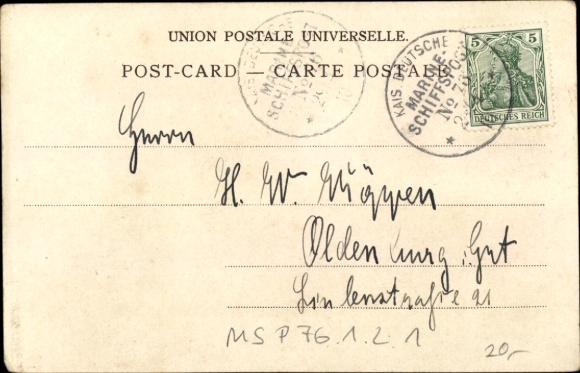 UNION POSTALE UNIVERSELLE.
POST-CARD — CARTE POSTALE.
KAIS. DEUTSCHE
MARINE
SCHIFFSPOST
No 76
MARINE
SCHIFFSPOST
No
5 5
DEUTSCHES REICH
Herrn
H. W.
Oldenburg i. Grt
Lindenstraße 21
MSP 76.1.2.1
20,-